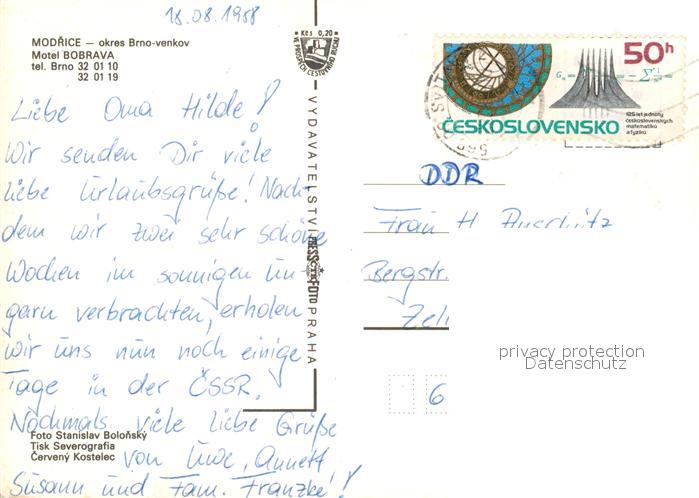 18.08.1988
MODŘICE — okres Brno-venkov
Motel BOBRAVA
tel. Brno 32 01 10
32 01 19
Liebe Oma Hilde!
Wir senden Dir viele
liebe Urlaubsgrüße! Nach-
dem wir zwei sehr schöne
Wochen im sonnigen Un-
garn verbrachten, erholen
wir uns nun noch einige
Tage in der ČSSR.
Nochmals viele liebe Grüße
von Uwe, Annett
Susann und Fam. Franzke!
Foto Stanislav Boloňský
Tisk Severografia
Červený Kostelec
Kčs 0,20
VE PROSPĚCH CESTOVNÍHO RUCHU
VYDAVATELSTVÍ PRESSFOTO PRAHA
50h
ČESKOSLOVENSKO
125 let jednoty
československých
matematiků
a fyziků
DDR
Frau H
Bergstr.
Zel
6
privacy protection
Datenschutz